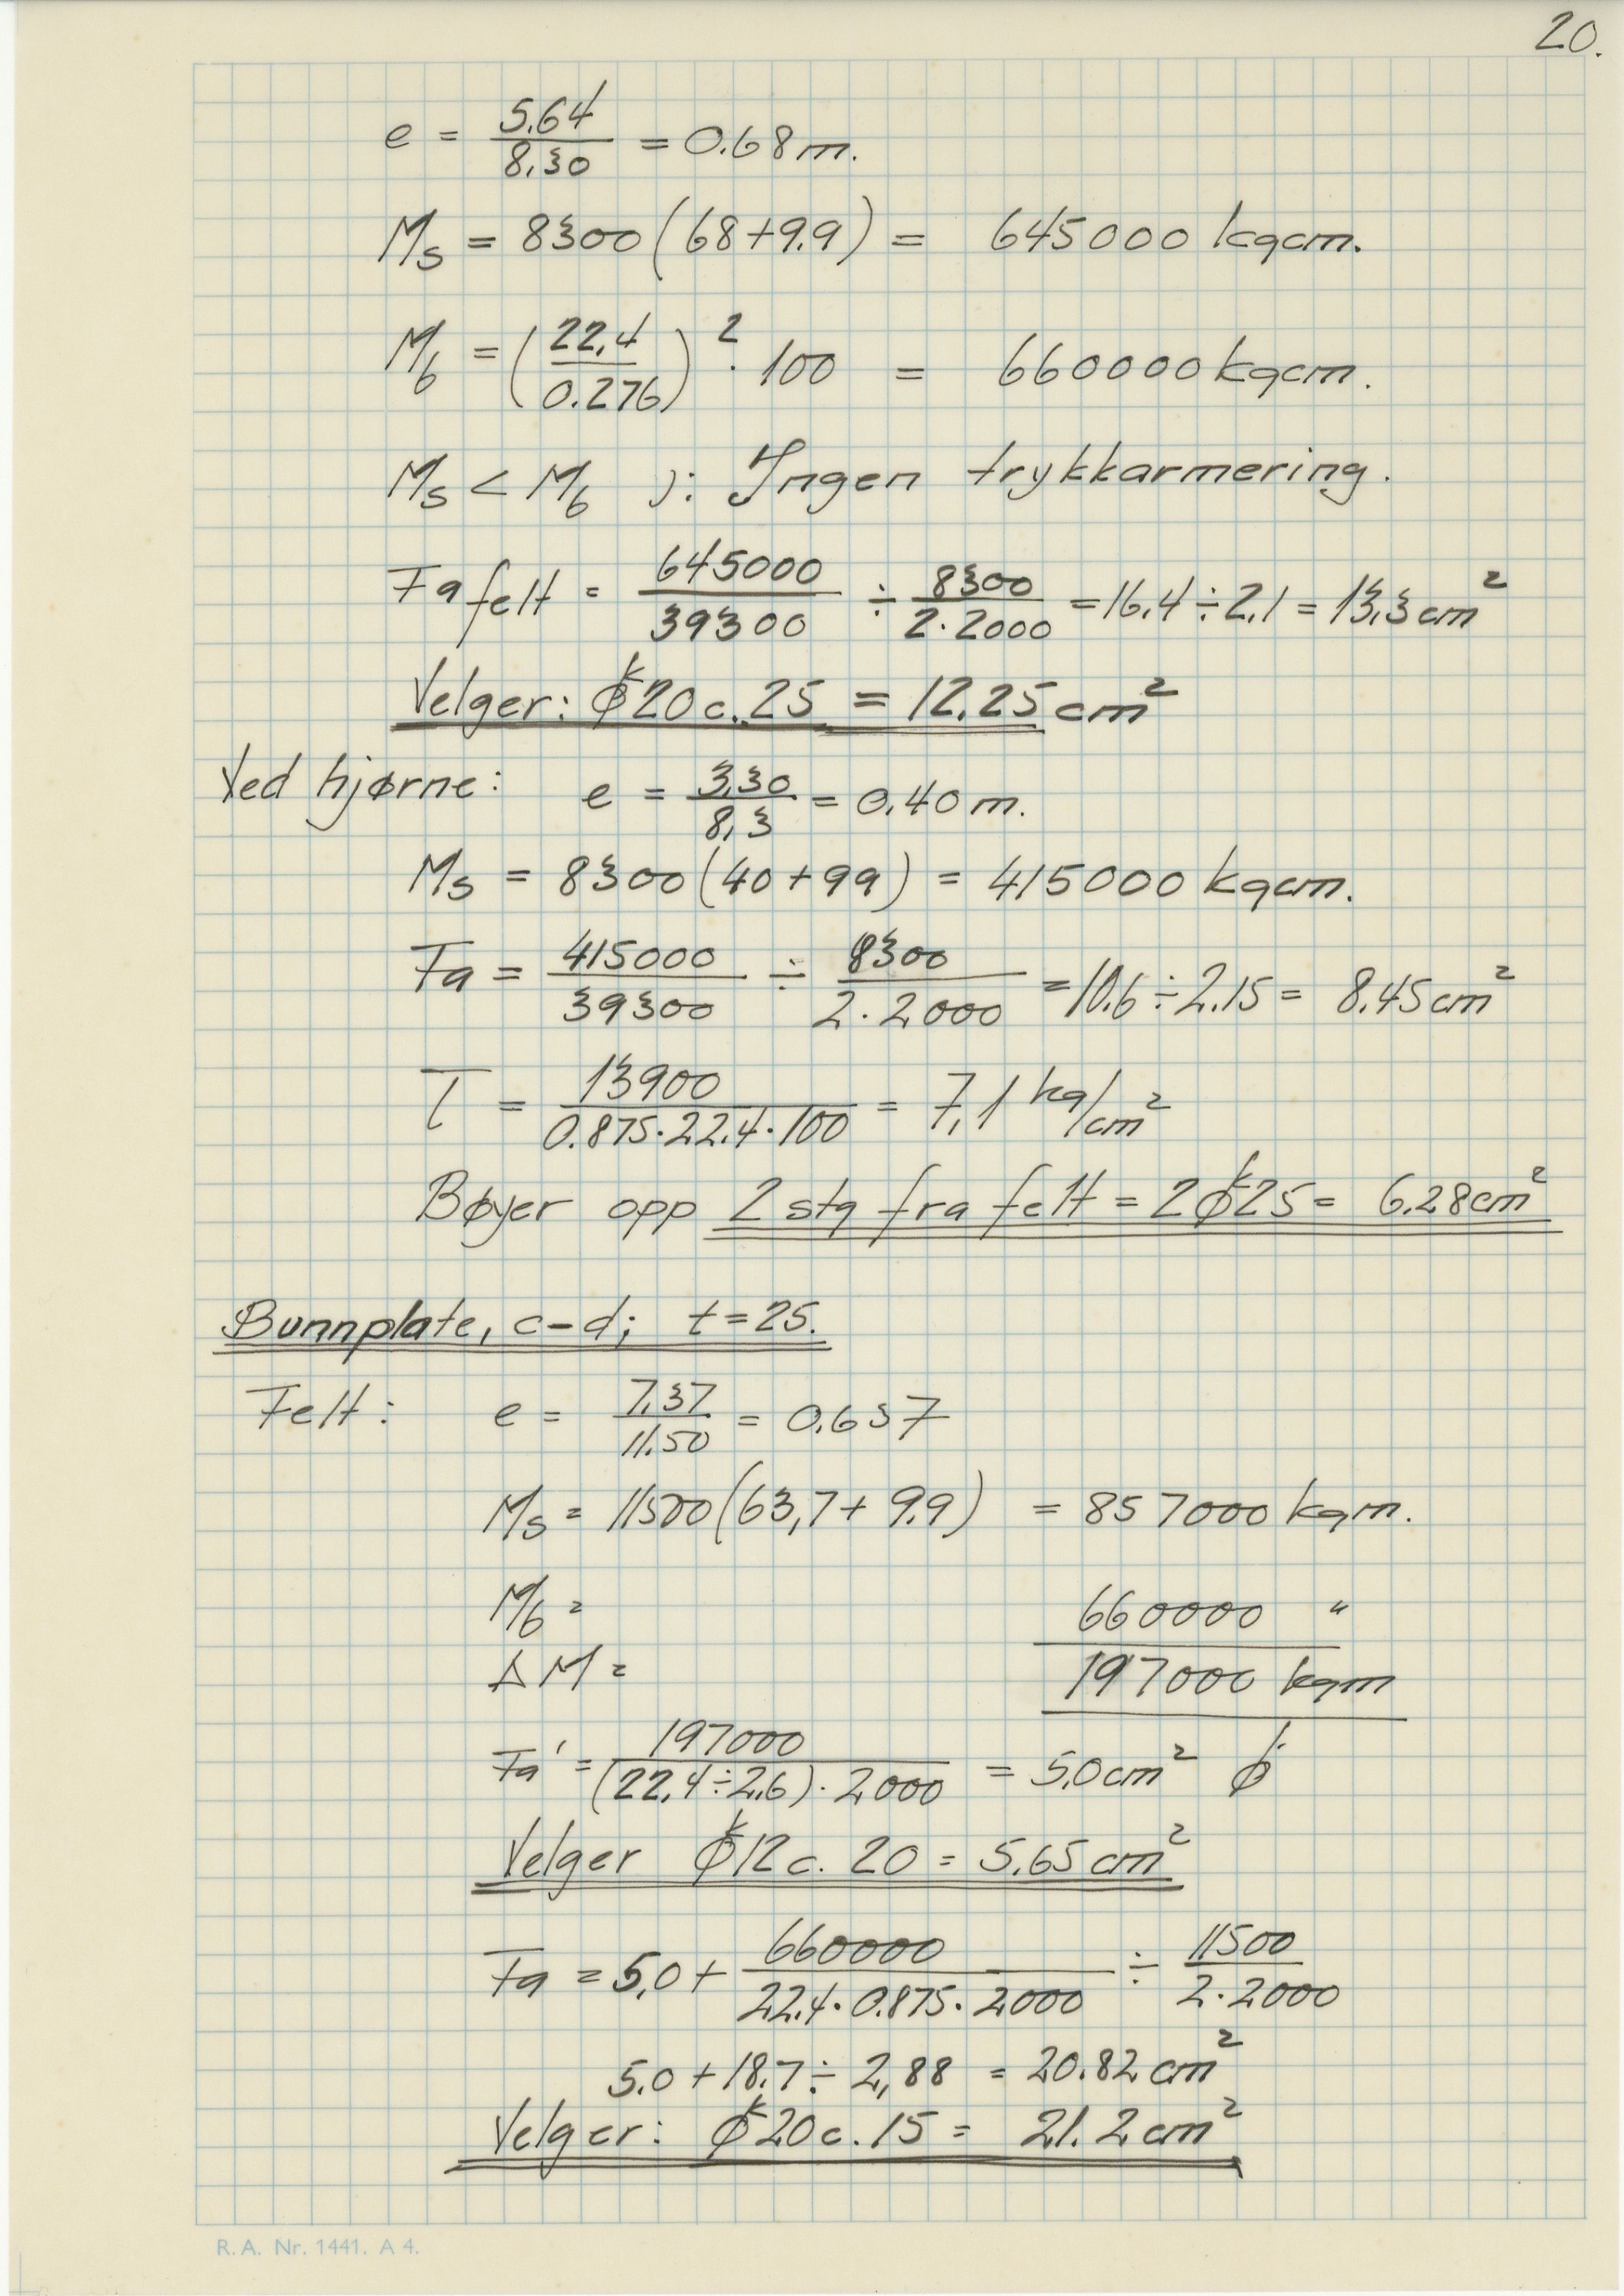 20.
e = 5.64 / 8.30 = 0.68 m.
Ms = 8300 (68+9.9) = 645000 kgcm.
Mb = (22,4 / 0.276)² · 100 = 660000 kgcm.
Ms < Mb ɔ: Ingen trykkarmering.
Fa felt = 645000 / 39300 ÷ 8300 / 2·2000 = 16.4 ÷ 2.1 = 13,3 cm²
Velger: ϕk 20 c. 25 = 12.25 cm²
Ved hjørne: e = 3,30 / 8,3 = 0.40 m.
Ms = 8300 (40+99) = 415000 kgcm.
Fa = 415000 / 39300 ÷ 8300 / 2·2000 = 10.6 ÷ 2.15 = 8.45 cm²
τ = 13900 / 0.875·22.4·100 = 7,1 kg/cm²
Bøyer opp 2 stg fra felt = 2ϕk25 = 6.28 cm²
Bunnplate, c-d; t=25.
Felt: e = 7,37 / 11.50 = 0.637
Ms = 11500 (63,7 + 9.9) = 857000 kgm.
Mb = 660000 "
ΔM = 197000 kgm
Fa' = 197000 / (22.4÷2.6)·2000 = 5,0 cm² ϕ
Velger ϕk 12 c. 20 = 5.65 cm²
Fa = 5,0 + 660000 / 22.4·0.875·2000 ÷ 11500 / 2·2000
5.0 + 18.7 ÷ 2,88 = 20.82 cm²
Velger: ϕk 20 c. 15 = 21.2 cm²
R.A. Nr. 1441. A 4.